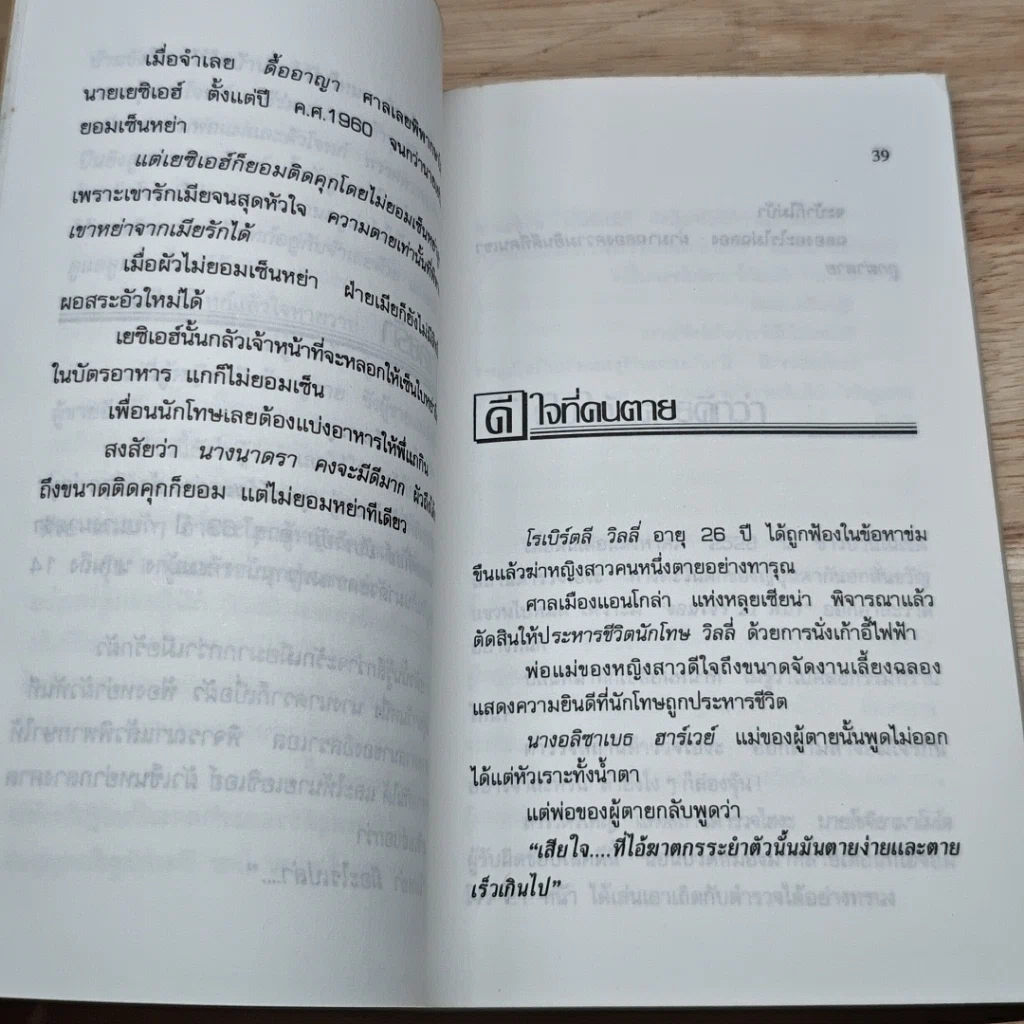 เมื่อจำเลย ดื้ออาญา ศาลเลยพิพากษา
นายเยซิเอฮ์ ตั้งแต่ปี ค.ศ.1960 จนกว่านาย
ยอมเซ็นหย่า
แต่เยซิเอฮ์ก็ยอมติดคุกโดยไม่ยอมเซ็นหย่า
เพราะเขารักเมียจนสุดหัวใจ ความตายเท่านั้นที่
เขาหย่าจากเมียรักได้
เมื่อผัวไม่ยอมเซ็นหย่า ฝ่ายเมียก็ยังไม่
ผอสระอัวใหม่ได้
เยซิเอฮ์นั้นกลัวเจ้าหน้าที่จะหลอกให้เซ็นใบหย่า
ในบัตรอาหาร แกก็ไม่ยอมเซ็น
เพื่อนนักโทษเลยต้องแบ่งอาหารให้พี่แกกิน
สงสัยว่า นางนาดรา คงจะมีดีมาก ผัวถึง
ถึงขนาดติดคุกก็ยอม แต่ไม่ยอมหย่าทีเดียว
39
ดีใจที่คนตาย
โรเบิร์ตลี วิลลี่ อายุ 26 ปี ได้ถูกฟ้องในข้อหาข่ม
ขืนแล้วฆ่าหญิงสาวคนหนึ่งตายอย่างทารุณ
ศาลเมืองแอนโกล่า แห่งหลุยเซียน่า พิจารณาแล้ว
ตัดสินให้ประหารชีวิตนักโทษ วิลลี่ ด้วยการนั่งเก้าอี้ไฟฟ้า
พ่อแม่ของหญิงสาวดีใจถึงขนาดจัดงานเลี้ยงฉลอง
แสดงความยินดีที่นักโทษถูกประหารชีวิต
นางอลิซาเบธ ฮาร์เวย์ แม่ของผู้ตายนั้นพูดไม่ออก
ได้แต่หัวเราะทั้งน้ำตา
แต่พ่อของผู้ตายกลับพูดว่า
“เสียใจ....ที่ไอ้ฆาตกรระยำตัวนั้นมันตายง่ายและตาย
เร็วเกินไป”